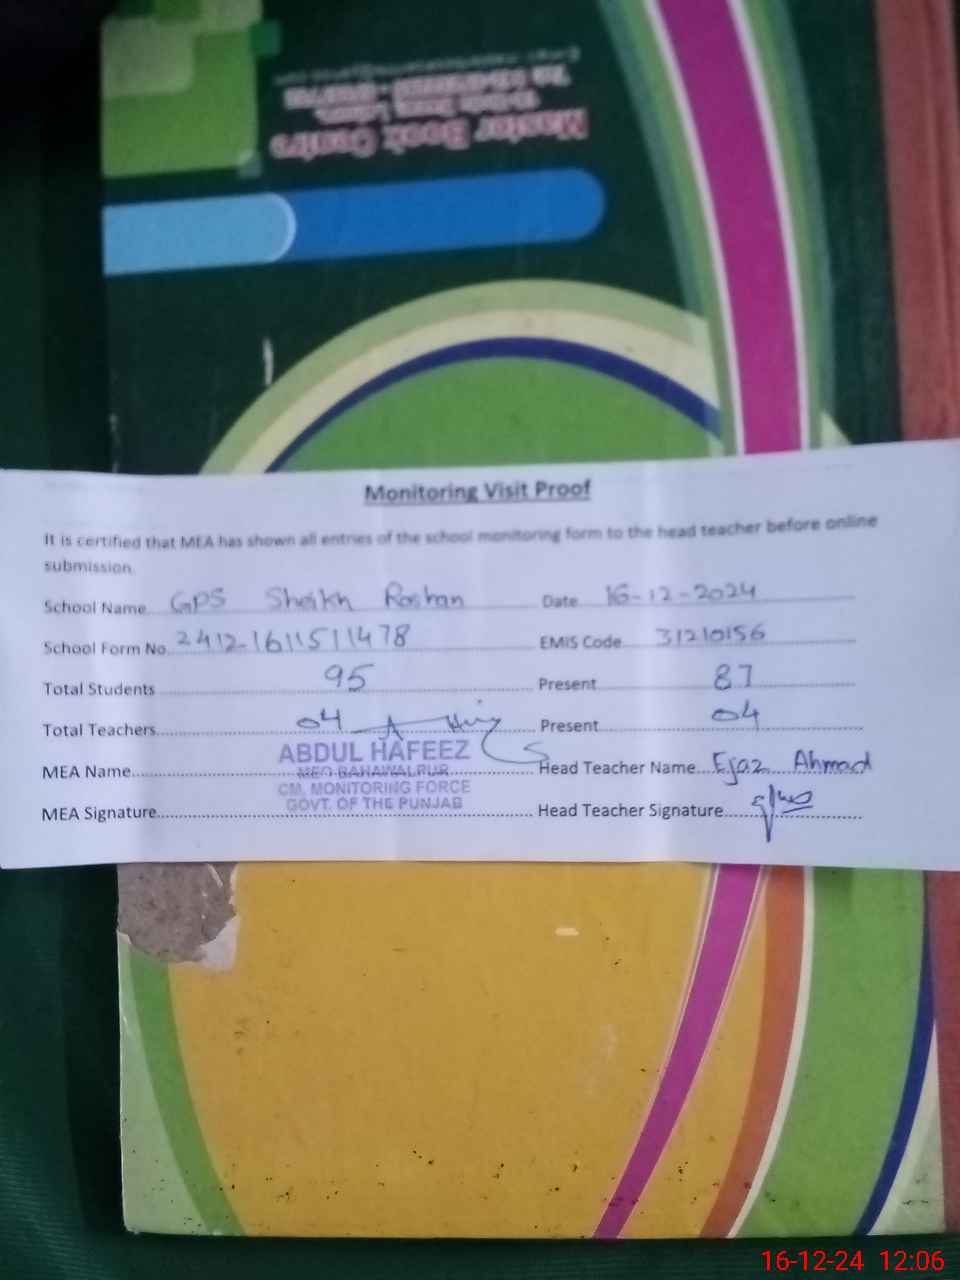 Master Book Centre
Monitoring Visit Proof
It is certified that MEA has shown all entries of the school monitoring form to the head teacher before online
submission.
School Name GPS Sheikh Roshan Date 16-12-2024
School Form No. 2412-1611511478 EMIS Code 31210156
Total Students 95 Present 87
Total Teachers 04 Present 04
ABDUL HAFEEZ
MEA Name Head Teacher Name Ejaz Ahmad
MEO BAHAWALPUR
CM, MONITORING FORCE
GOVT. OF THE PUNJAB
MEA Signature Head Teacher Signature
16-12-24 12:06